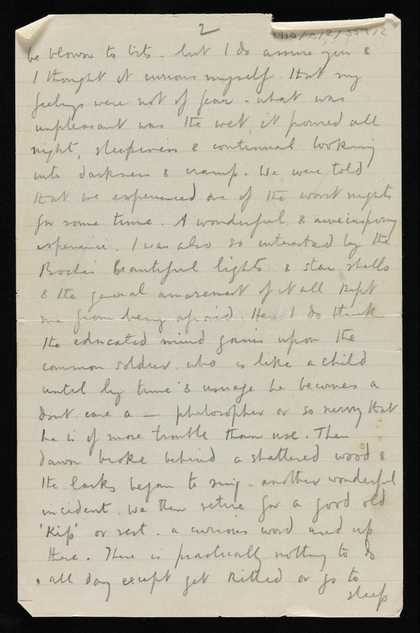 2
be blown to bits. but I do assure you &
I thought it curious myself. that my
feelings were not of fear. what was
unpleasant was the wet, it poured all
night, sleepiness & continual looking
into darkness & cramp. We were told
that we experienced one of the worst nights
for some time. A wonderful & aweinspiring
experience. I was also so interested by the
Boches beautiful lights & star shells
& the general amazement of it all kept
me from being afraid. Here I do think
the educated mind gains upon the
common soldier who is like a child
until by time & usage he becomes a
dont care a — philosopher or so nervy that
he is of more trouble than use. Then
dawn broke behind a shattered wood &
the larks began to sing. another wonderful
incident. We then retire for a good old
'Kip' or rest. a curious word used up
there. There is practically nothing to do
all day except get killed or go to
sleep